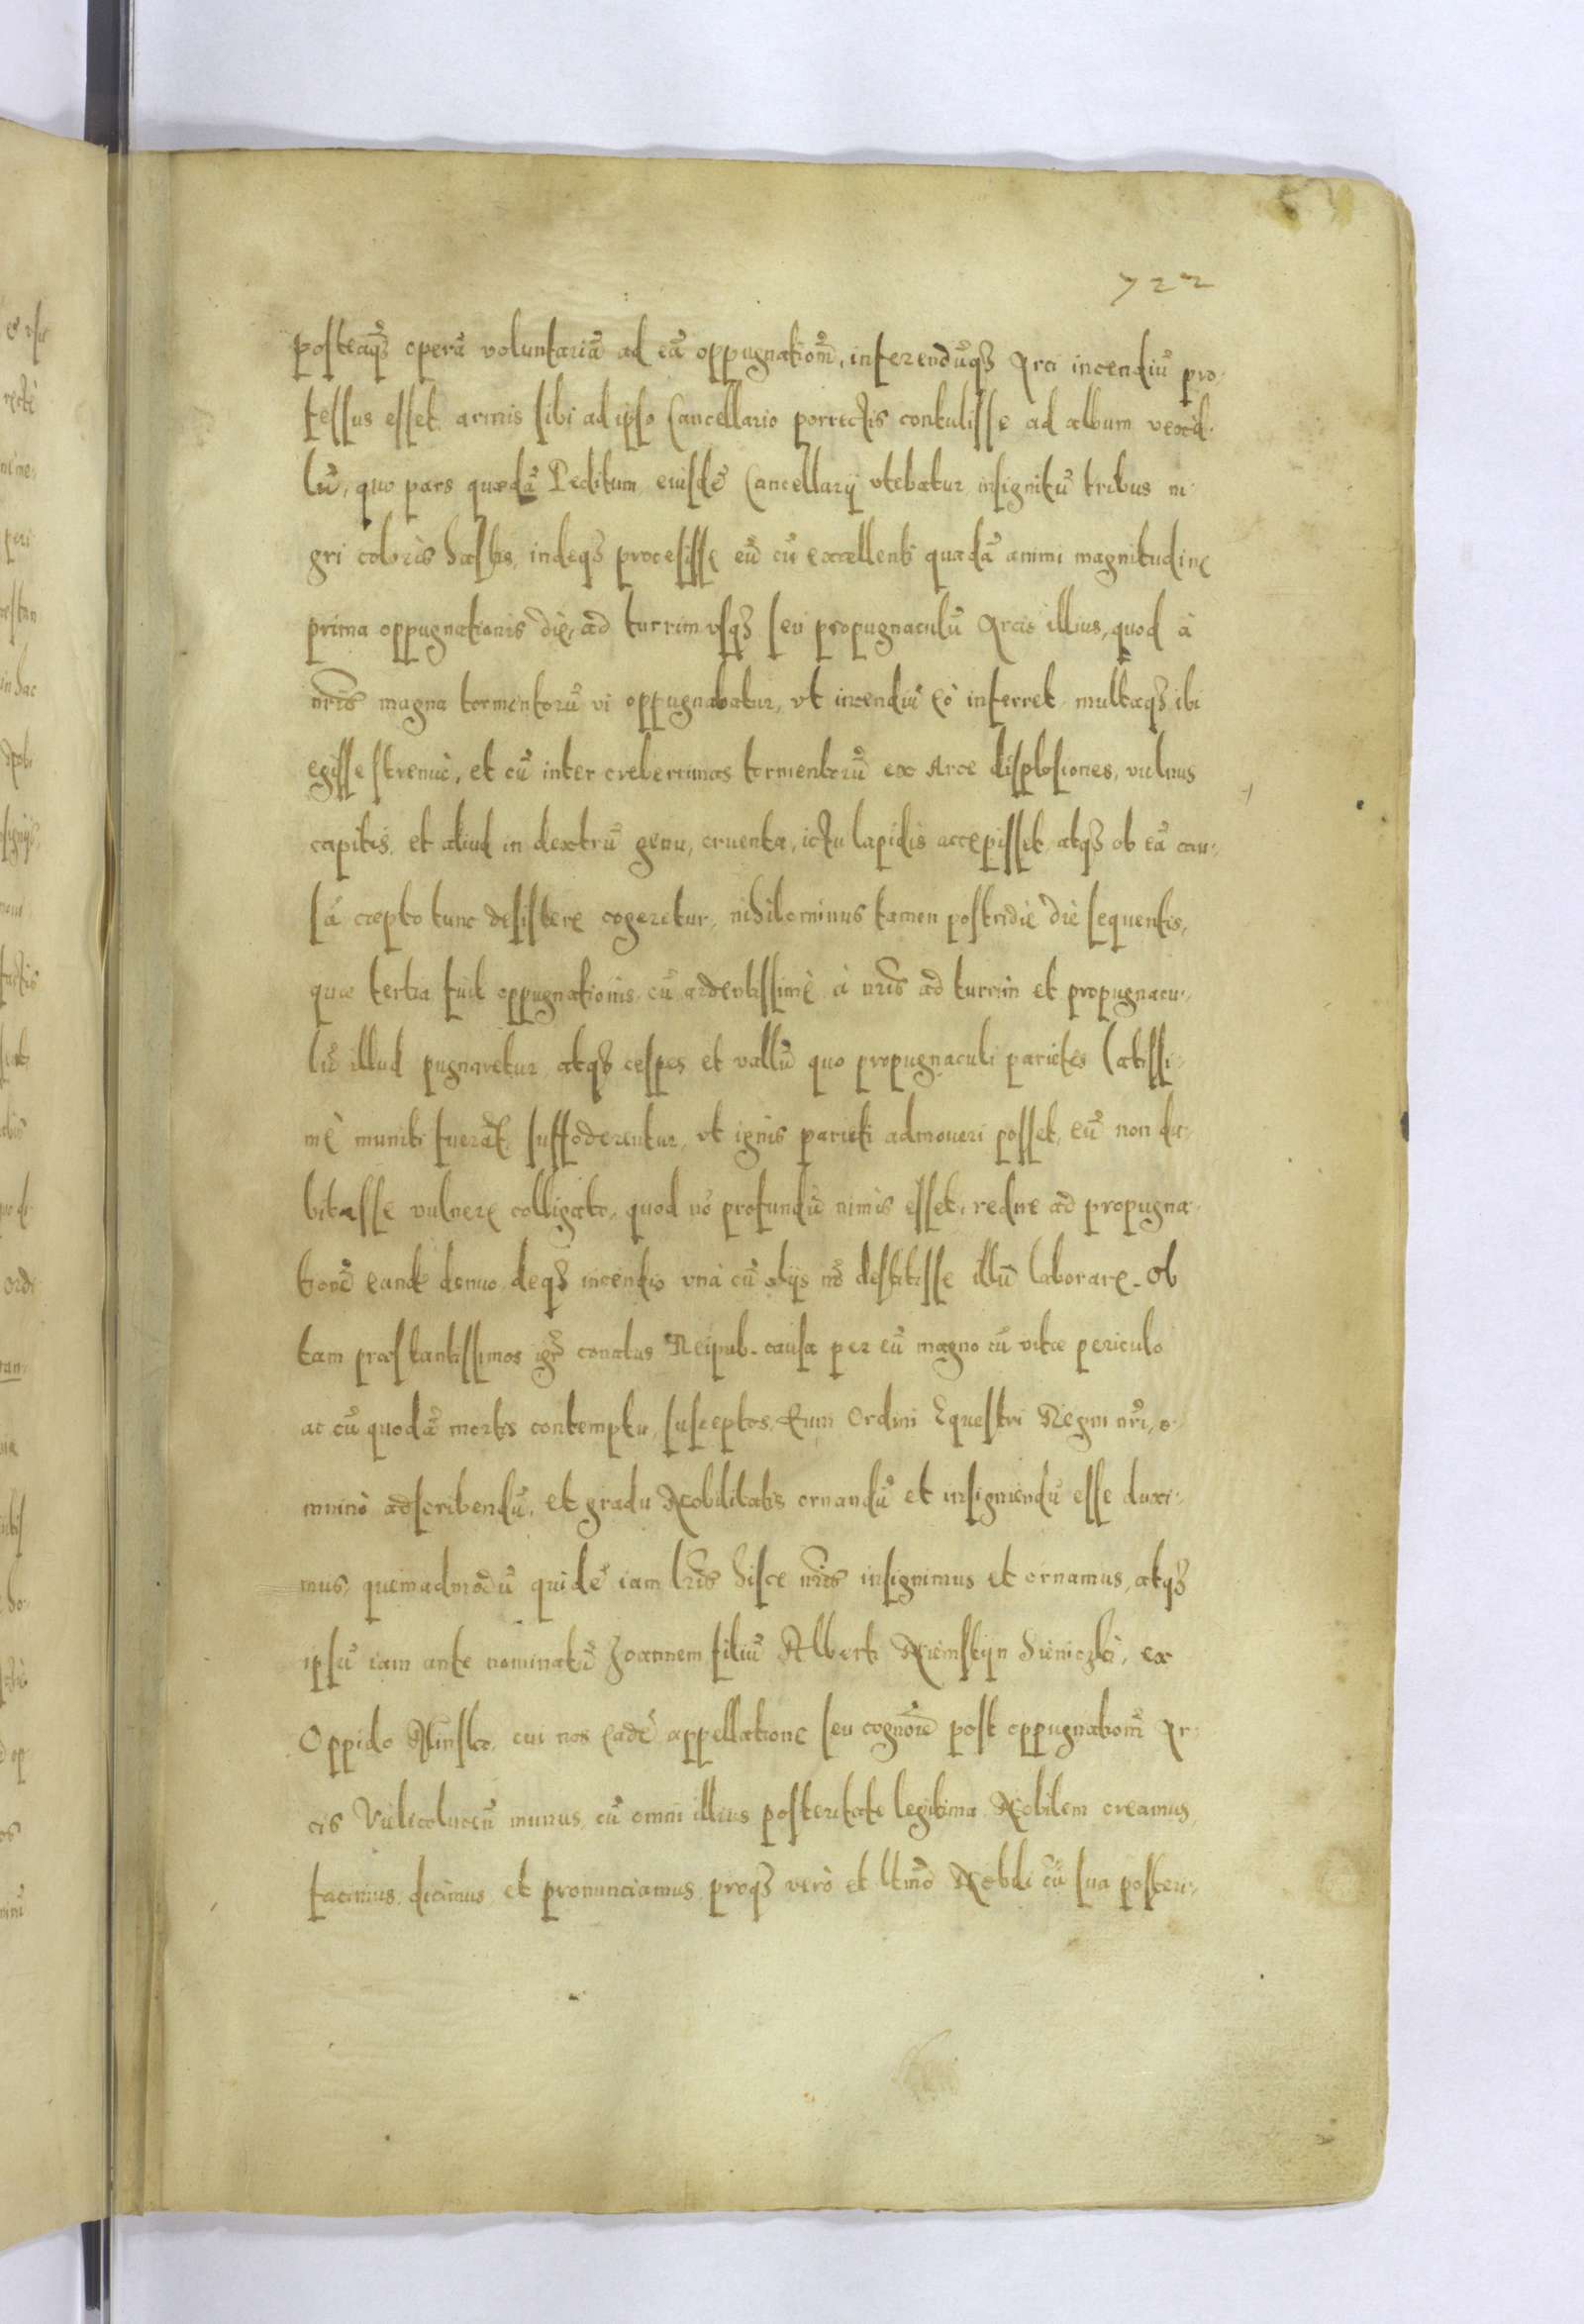 722
posteaq₃ operā voluntariā ad eā oppugnationē, inferendūq₃ Arci incendiū pro-
fessus esset armis sibi ad ipso Cancellario porrectis contulisse ad album vexil-
lū, quo pars quædā Peditum eiusdē Cancellarij vtebatur insignitū tribus ni-
gri coloris hastis, indeq₃ procesisse eū cū excellenti quadā animi magnitudine
prima oppugnationis die, ad turrim vsq₃ seu propugnaculū Arcis illius, quod à
nr̄is magna tormentorū vi oppugnabatur, vt incendiū eò inferret multaq₃ ibi
egisse strenuè, et cū inter creberrimas tormentorū ex Arce displosiones, vulnus
capitis, et aliud in dextrū genu, cruenta, ictu lapidis accepisset atq₃ ob eā cau-
sā cæpto tunc desistere cogeretur, nihilominus tamen postridie die sequentis,
quæ tertia fuit oppugnationis, cū ardentissimè à nr̄is ad turrim et propugnacu-
lū illud pugnaretur atq₃ cespes et vallū quo propugnaculi parietes latissi-
mè muniti fuerāt suffoderentur, vt ignis parieti admoueri posset, eū non du-
bitasse vulnere colligato, quod nō profundū nimis esset, redire ad propugna-
tionē eandē denuo, deq₃ incendio vnà cū alijs nō destitisse illū laborare. Ob
tam præstantissimos igr̄ conatus Reipub. causa per eū magno cū vitæ periculo
ac cū quodā mortis contemptu susceptos, Eum Ordini Equestri Regni nr̄i, o-
mninò adscribendū, et gradu Nobilitatis ornandū et insigniendū esse duxi-
mus, quemadmodū quidē iam lr̄is hisce nr̄is insignimus et ornamus, atq₃
ipsū iam ante nominatū Joannem filiū Alberti Niemstijn, ex
Oppido Minsko, cui nos eadē appellatione seu cognōie post oppugnationē Ar-
cis Vielicolucū munus, cū omni illius posteritate legitima Nobilem creamus,
facimus, dicimus, et pronunciamus, proq₃ vero et ltīmo Nobili cū sua posteri-